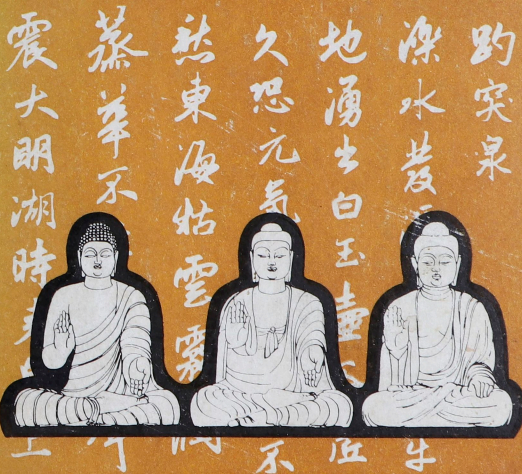 趵突泉
濼水發平
地湧出白玉壺
久恐元氣不
愁東海枯雲霧潤
蒸華不
震大明湖時來上